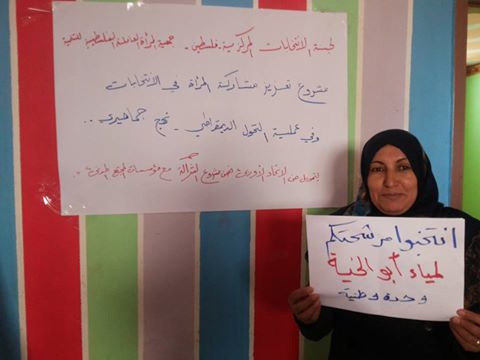 لجنة الانتخابات المركزية - فلسطين - جمعية المرأة العاملة الفلسطينية للتنمية
مشروع تعزيز مشاركة المرأة في الانتخابات
وفي عملية التحول الديمقراطي - نهج جماهيري ..
بتمويل من الاتحاد الأوروبي ضمن مشروع الشراكة مع مؤسسات المجتمع المدني
انتخبوا مرشحتكم
لمياء أبو الخنية
وحدة وطنية